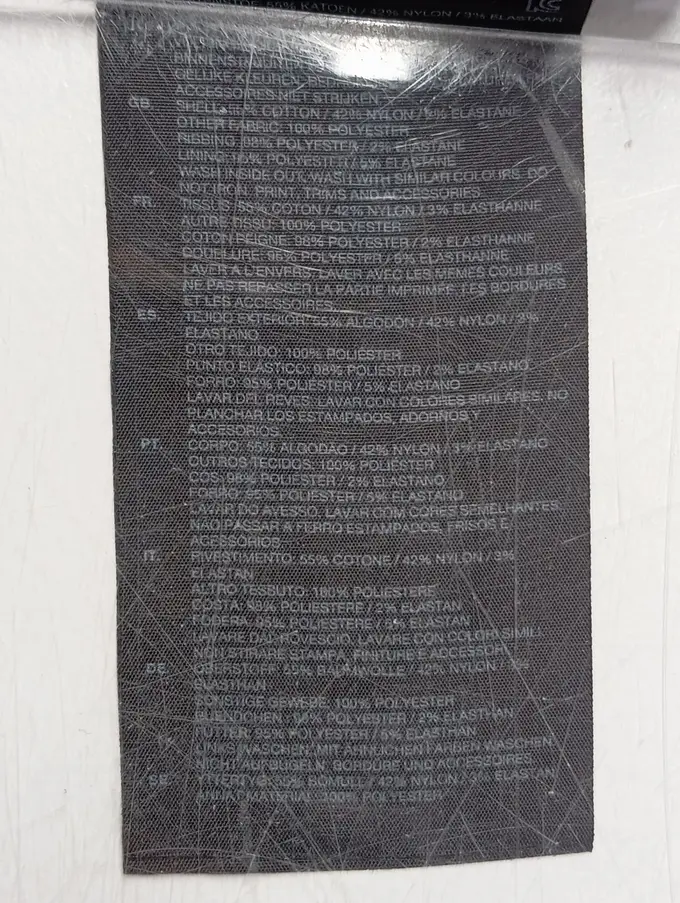 55% KATOEN / 42% NYLON / 3% ELASTAAN
GELIJKE KLEUREN.
ACCESSOIRES NIET STRIJKEN.
GB SHELL: 55% COTTON / 42% NYLON / 3% ELASTANE
OTHER FABRIC: 100% POLYESTER
RIBBING: 98% POLYESTER / 2% ELASTANE
LINING: 95% POLYESTER / 5% ELASTANE
WASH INSIDE OUT. WASH WITH SIMILAR COLOURS. DO
NOT IRON, PRINT, TRIMS AND ACCESSORIES.
FR TISSU: 55% COTON / 42% NYLON / 3% ELASTHANNE
AUTRE TISSU: 100% POLYESTER
COTON PEIGNE: 98% POLYESTER / 2% ELASTHANNE
DOUBLURE: 95% POLYESTER / 5% ELASTHANNE
LAVER A L'ENVERS. LAVER AVEC LES MEMES COULEURS.
NE PAS REPASSER LA PARTIE IMPRIMEE, LES BORDURES
ET LES ACCESSOIRES.
ES TEJIDO EXTERIOR: 55% ALGODON / 42% NYLON / 3%
ELASTANO
OTRO TEJIDO: 100% POLIESTER
PUNTO ELASTICO: 98% POLIESTER / 2% ELASTANO
FORRO: 95% POLIESTER / 5% ELASTANO
LAVAR DEL REVES. LAVAR CON COLORES SIMILARES. NO
PLANCHAR LOS ESTAMPADOS, ADORNOS Y
ACCESORIOS.
PT CORPO: 55% ALGODAO / 42% NYLON / 3% ELASTANO
OUTROS TECIDOS: 100% POLIESTER
COS: 98% POLIESTER / 2% ELASTANO
FORRO: 95% POLIESTER / 5% ELASTANO
LAVAR DO AVESSO. LAVAR COM CORES SEMELHANTES.
NAO PASSAR A FERRO ESTAMPADOS, FRISOS E
ACESSORIOS.
IT RIVESTIMENTO: 55% COTONE / 42% NYLON / 3%
ELASTAN
ALTRO TESSUTO: 100% POLIESTERE
COSTA: 98% POLIESTERE / 2% ELASTAN
FODERA: 95% POLIESTERE / 5% ELASTAN
LAVARE DAL ROVESCIO. LAVARE CON COLORI SIMILI.
NON STIRARE STAMPA, FINITURE E ACCESSORI.
DE OBERSTOFF: 55% BAUMWOLLE / 42% NYLON / 3%
ELASTHAN
SONSTIGE GEWEBE: 100% POLYESTER
BUENDCHEN: 98% POLYESTER / 2% ELASTHAN
FUTTER: 95% POLYESTER / 5% ELASTHAN
LINKS WASCHEN. MIT AHNLICHEN FARBEN WASCHEN.
NICHT AUFBUGELN, BORDURE UND ACCESSOIRES.
SE YTTERTYG: 55% BOMULL / 42% NYLON / 3% ELASTAN
ANNAT MATERIAL: 100% POLYESTER